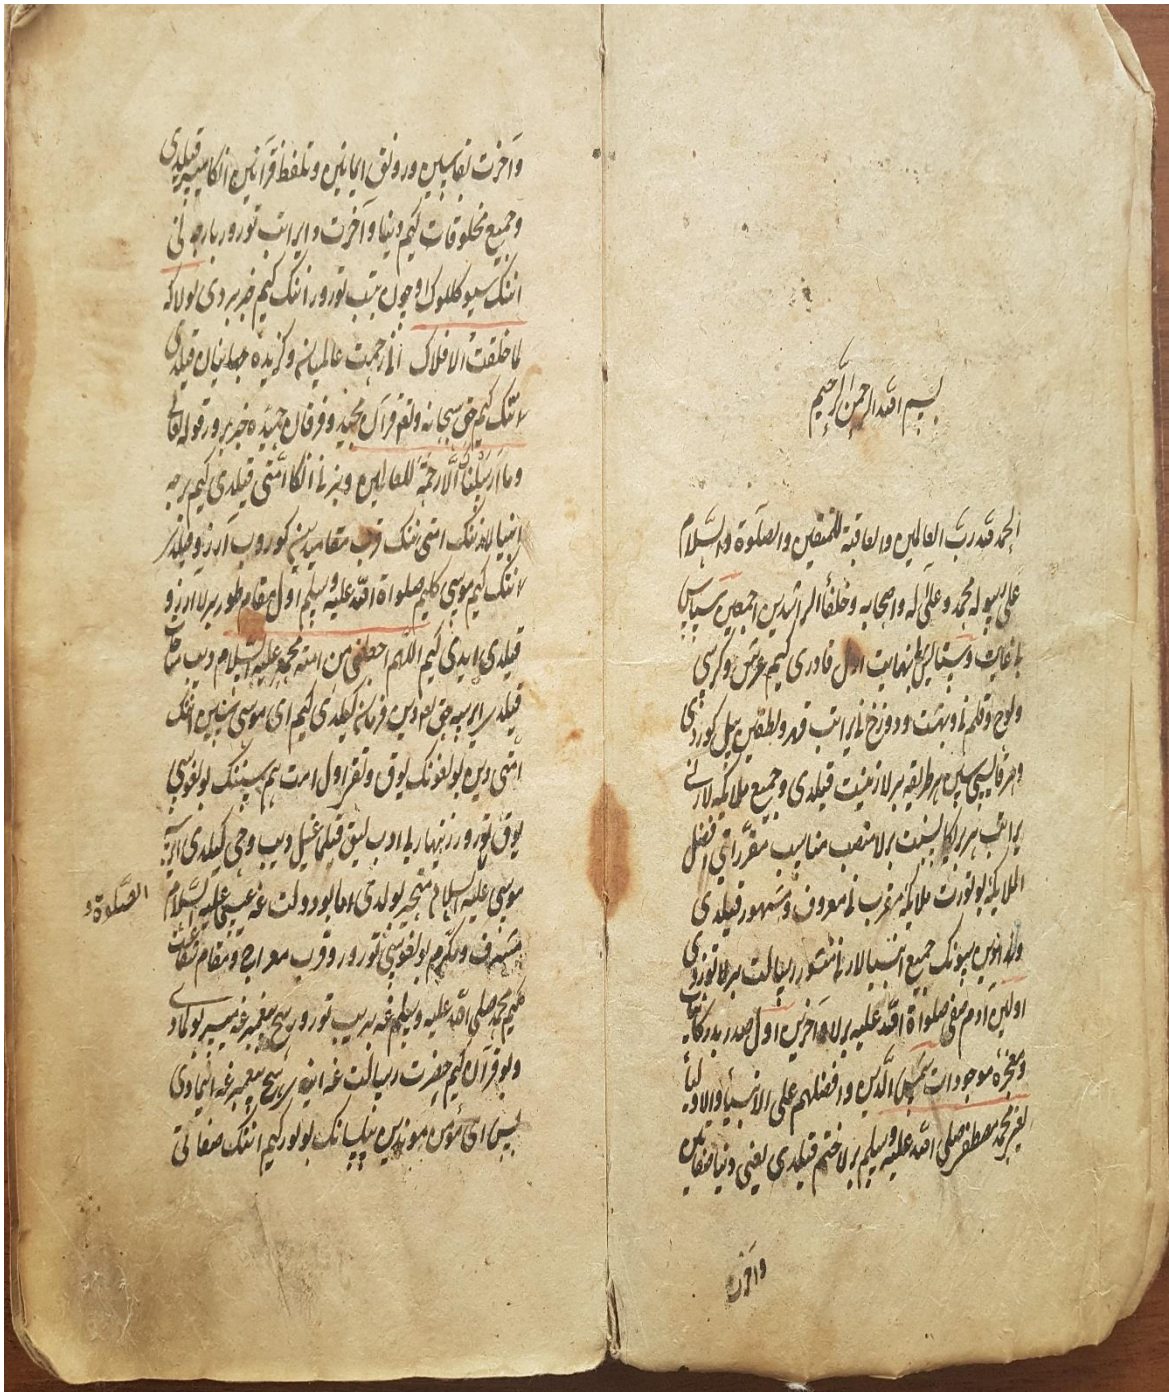 بسم الله الرحمن الرحيم
الحمد لله رب العالمين والعاقبة للمتقين والصلوة والسلام
على رسوله محمد وعلى آله واصحابه وخلفاء الراشدين اجمعين سپاس
بلا غايت وستايش بلا نهايت اول قادرى كيم عرش وكرسى
ولوح وقلم نى وبهشت ودوزخ نى يراتب قهر ولطفين بيل كوردى
وهر قايسى سين هر طريقه برلا زينت قيلدى وجميع ملايكه لارنى
يراتب هر بريكا برلا منصب مناسب مقرر افضل
الملايكه ملايكه مقرب نى معروف ومشهور قيلدى
سونك جميع انبيالارنى منشور رسالت برلا توزدى
اولين آدم صفى صلواة الله عليه برلا وآخرين اول صدر بدر كاينات
ومفخره موجودات شمس الدين وافضلهم على الانبيا والاوليا
يعنى محمد مصطفى صلى الله عليه وسلم برلا ختم قيلدى يعنى دنيا صفاسين
وآخرت
وآخرت بقاسين ورونق ايمانين وتلفظ قرآنين انكا ميسر قيلدى
وجميع مخلوقات كيم دنيا وآخرت دا يراتب تورور بارچه نى
انينك سيوكلوك اوچون يتب تورور انينك كيم خبر بردى لولاك
لما خلقت الافلاك انى رحمت عالميان وكزيده جهانيان قيلدى
انينك كيم حق سبحانه وتع قرآن مجيد وفرقان حميده خبر برور قوله تعالى
وما ارسلناك الا رحمة للعالمين وبزنى انكا امتى قيلدى كيم برچه
انبيالار نينك امتى نينك قرب مقاميسين كوروب آرزو قيلدلر
انينك كيم موسى كليم صلواة الله عليه وسلم اول مقام طور برلا آرزو
قيلدى ايدى كيم اللهم اجعلنى من امته محمد عليه السلام ديب مناجات
قيلدى ايرسه حق لعادين فرمان كيلدى كيم اى موسى سين انينك
امتى دين بولغونك يوق وتقر اول امت هم سنينك بولغوسى
يوق تورور زينهار بى ادب ليق قيلماغيل ديب وحى كيلدى ايرسه
موسى عليه السلام متحير بولدى اما بو دولت غه عيسى عليه السلام
مشرف ومكرم بولغوسى تورور وقرب معراج ومقام شفاعت
كيم محمد صلى الله عليه وسلم غه بريب تورور هيچ پيغمبرغه ميسر بولمادى
وبو قرآن كيم حضرت رسالت غه ايندى هيچ پيغمبرغه اينمادى
پس اى مؤمن موندين بولور كيم انينك صفاتى
الصلوة و